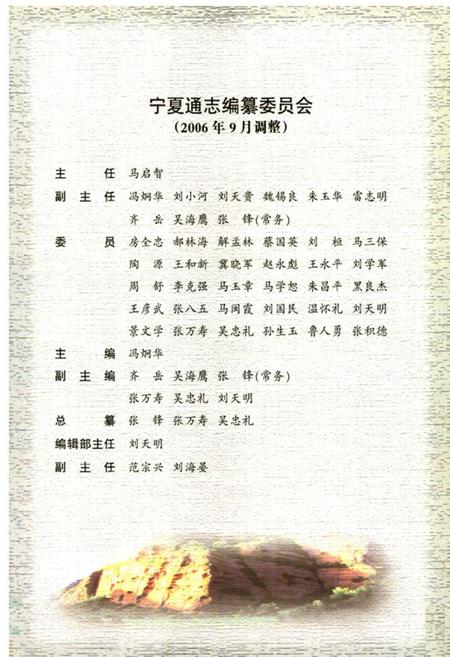 宁夏通志编纂委员会
(2006年9月调整)
主 任 马启智
副 主 任 冯炯华 刘小河 刘天贵 魏锡良 朱玉华 雷志明
齐 岳 吴海鹰 张 锋(常务)
委 员 房全忠 郝林海 解孟林 蔡国英 刘 桓 马三保
陶 源 王和新 冀晓军 赵永彪 王永平 刘学军
周 舒 李克强 马玉章 马学恕 朱昌平 黑良杰
王彦武 张八五 马闽霞 刘国民 温怀礼 刘天明
景文学 张万寿 吴忠礼 孙生玉 鲁人勇 张积德
主 编 冯炯华
副 主 编 齐 岳 吴海鹰 张 锋(常务)
张万寿 吴忠礼 刘天明
总 纂 张 锋 张万寿 吴忠礼
编辑部主任 刘天明
副 主 任 范宗兴 刘海晏